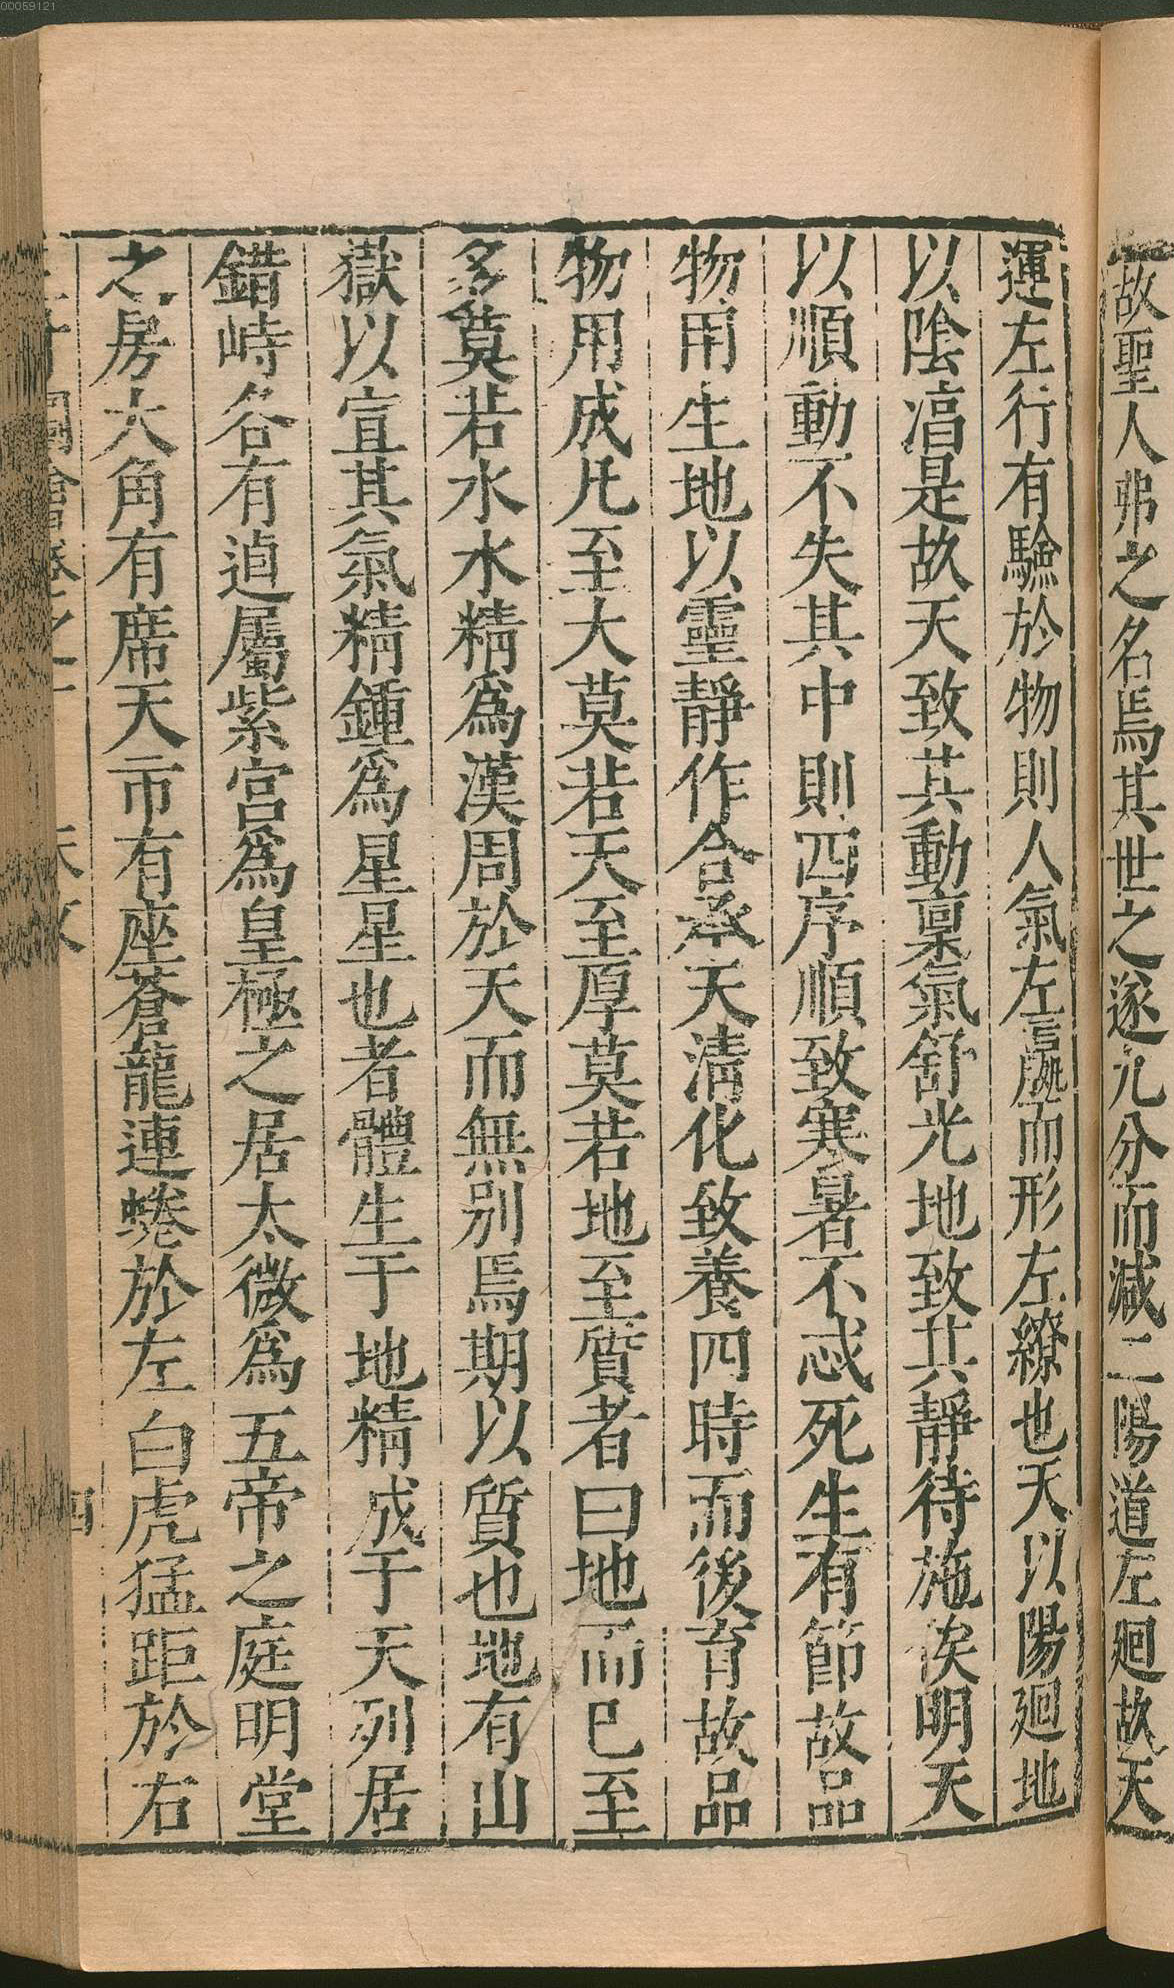 00059121
故聖人弗之名焉其世之遂九分而減二陽道左廻故天
運左行有驗於物則人氣左言處而形左繚也天以陽廻地
以陰淐是故天致其動稟氣舒光地致其靜待施俟明天
以順動不失其中則四序順致寒暑不忒死生有節故品
物用生地以靈靜作合承天清化致養四時而後育故品
物用成凡至大莫若天至厚莫若地至質者曰地而巳至
多莫若水水精爲漢周於天而無别焉期以質也地有山
獄以宣其氣精鍾爲星星也者體生于地精成于天列居
錯峙各有逌屬紫宮爲皇極之居太微爲五帝之庭明堂
之房大角有席天市有座蒼龍連蜷於左白虎猛距於右
會卷之一 天文 四